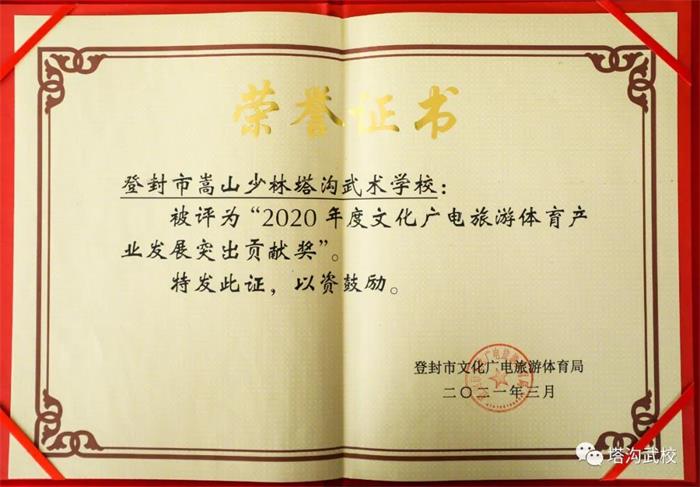 荣誉证书
登封市嵩山少林塔沟武术学校：
被评为“2020年度文化广电旅游体育产
业发展突出贡献奖”。
特发此证，以资鼓励。
登封市文化广电旅游体育局
二〇二一年三月
塔沟武校